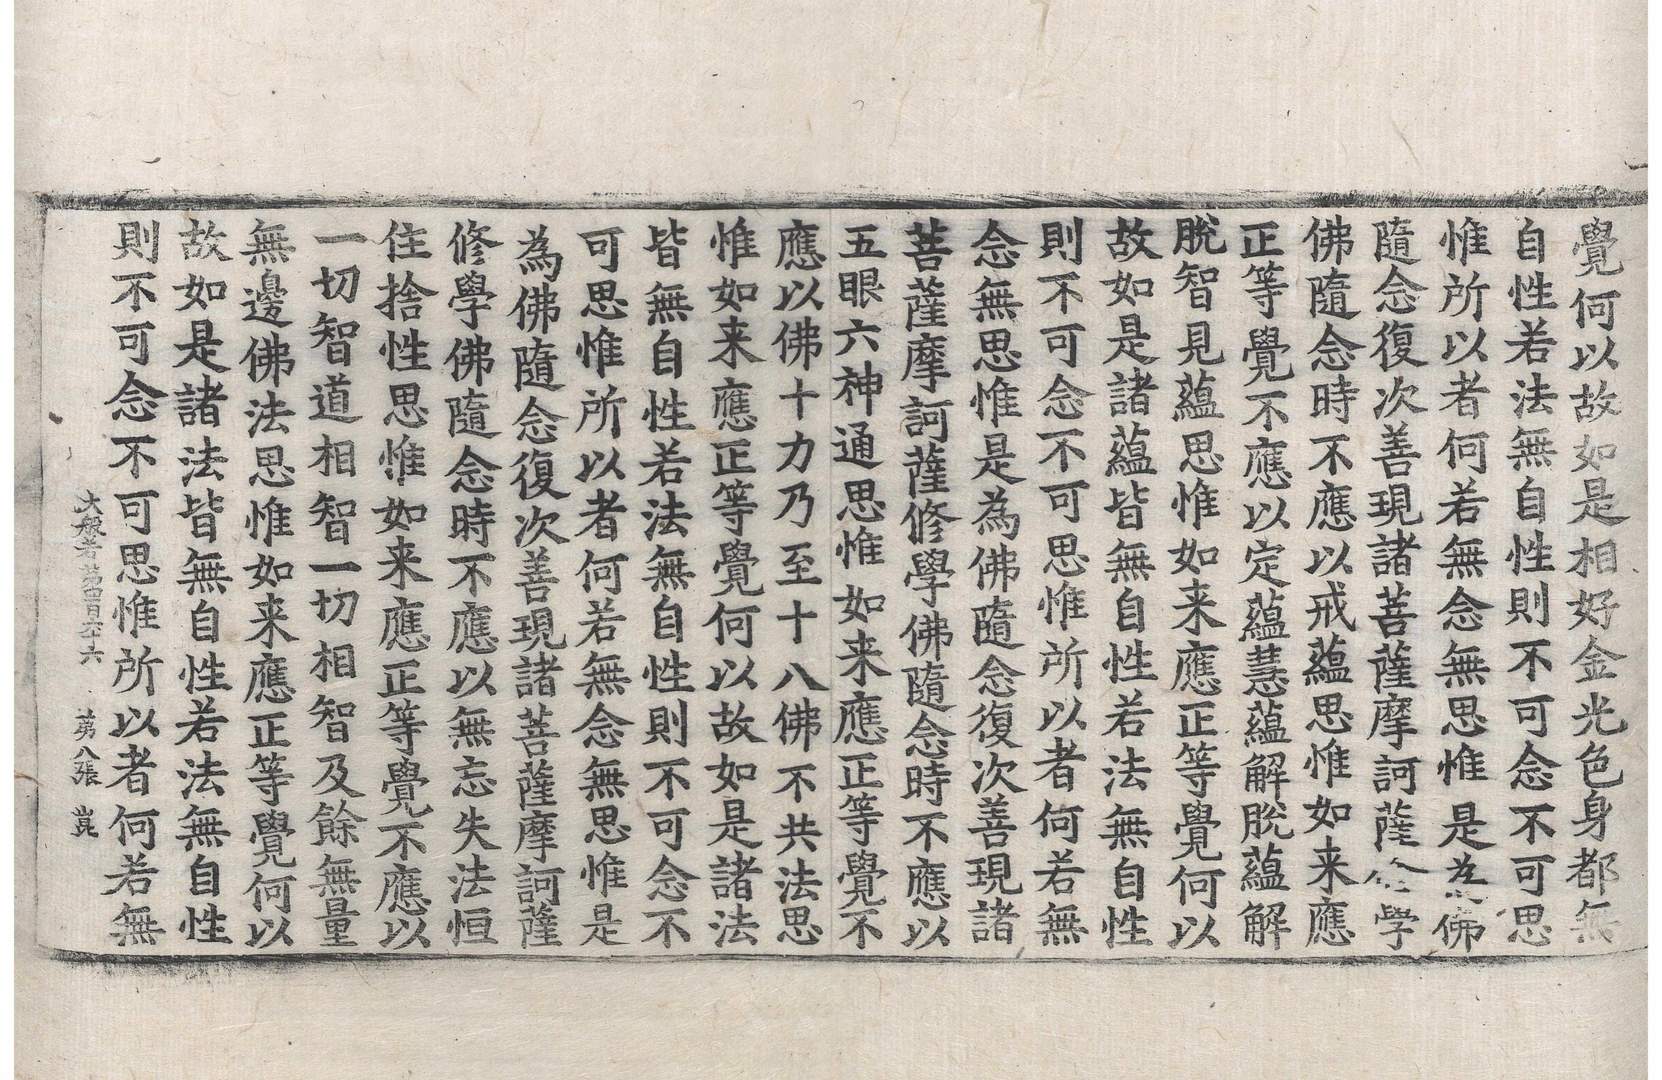 覺何以故如是相好金光色身都無
自性若法無自性則不可念不可思
惟所以者何若無念無思惟是為佛
隨念復次善現諸菩薩摩訶薩學
佛隨念時不應以戒蘊思惟如来應
正等覺不應以定蘊慧蘊解脫蘊解
脫智見蘊思惟如来應正等覺何以
故如是諸蘊皆無自性若法無自性
則不可念不可思惟所以者何若無
念無思惟是為佛隨念復次善現諸
菩薩摩訶薩修學佛隨念時不應以
五眼六神通思惟如来應正等覺不
應以佛十力乃至十八佛不共法思
惟如来應正等覺何以故如是諸法
皆無自性若法無自性則不可念不
可思惟所以者何若無念無思惟是
為佛隨念復次善現諸菩薩摩訶薩
修學佛隨念時不應以無忘失法恒
住捨性思惟如来應正等覺不應以
一切智道相智一切相智及餘無量
無邊佛法思惟如来應正等覺何以
故如是諸法皆無自性若法無自性
則不可念不可思惟所以者何若無
大般若苐四百六十六 苐八張 崑